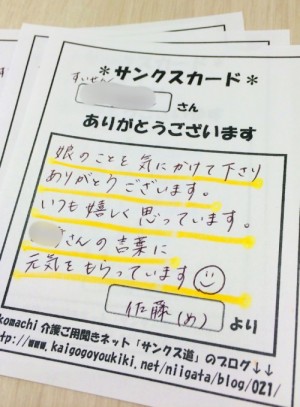 ＊サンクスカード＊
すいせん
さん
ありがとうございます
娘のことを気にかけて下さり
ありがとうございます。
いつも嬉しく思っています。
さんの言葉に
元気をもらっています
佐藤(め)
より
komachi 介護ご用聞きネット「サンクス道」のブログ↓↓
tp://www.kaigogoyoukiki.net/niigata/blog/021/